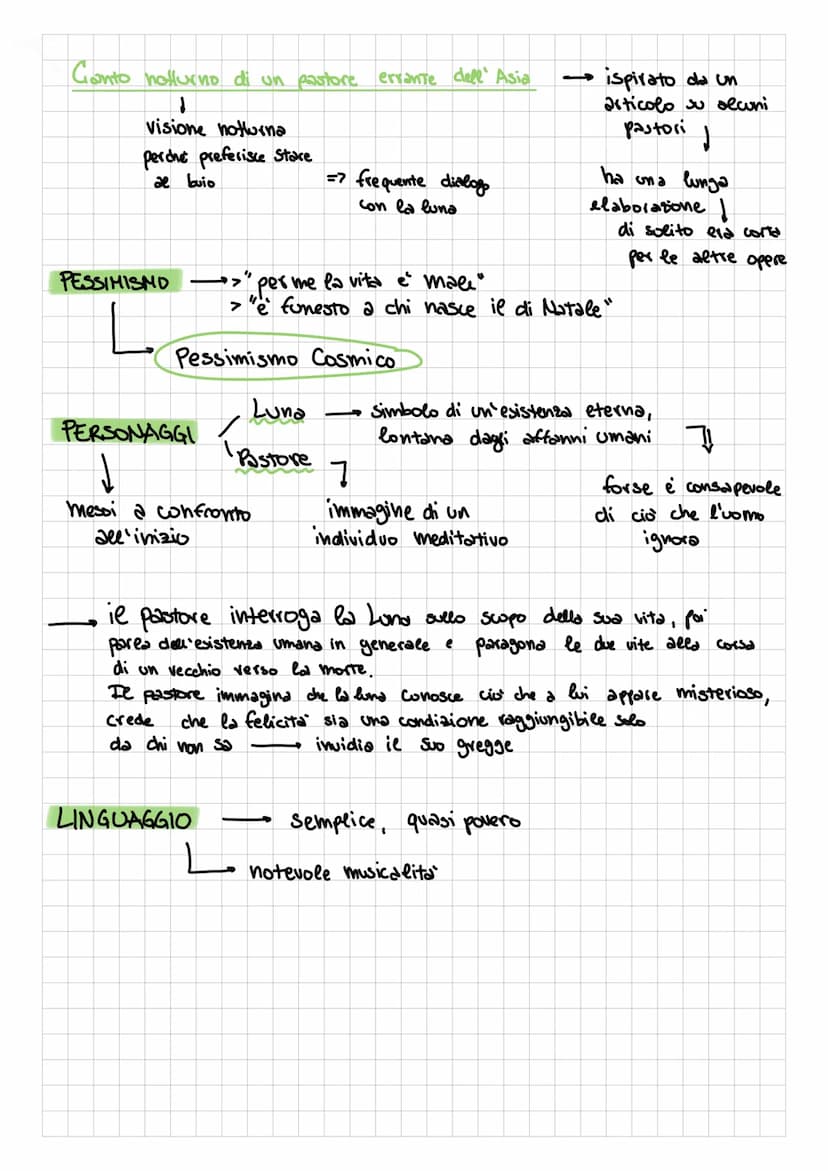 Canto notturno di un pastore errante dell'Asia → ispirato da un
articolo su alcuni
pastori
↓
visione notturna
perché preferisce stare
al buio
=> frequente dialogo
con la luna
ha una lunga
elaborazione
di solito era corta
per le altre opere
PESSIMISMO → > "per me la vita è male"
> "è funesto a chi nasce il dì Natale"
Pessimismo Cosmico
PERSONAGGI
Luna → simbolo di un'esistenza eterna,
lontana dagli affanni umani
Pastore
forse è consapevole
di ciò che l'uomo
ignora
messi a confronto
all'inizio
immagine di un
individuo meditativo
→ il pastore interroga la Luna sullo scopo della sua vita, poi
parla dell'esistenza umana in generale e paragona le due vite alla corsa
di un vecchio verso la morte.
Il pastore immagina che la luna conosce ciò che a lui appare misterioso,
crede che la felicità sia una condizione raggiungibile solo
da chi non sa → invidia il suo gregge
LINGUAGGIO → semplice, quasi povero
notevole musicalità